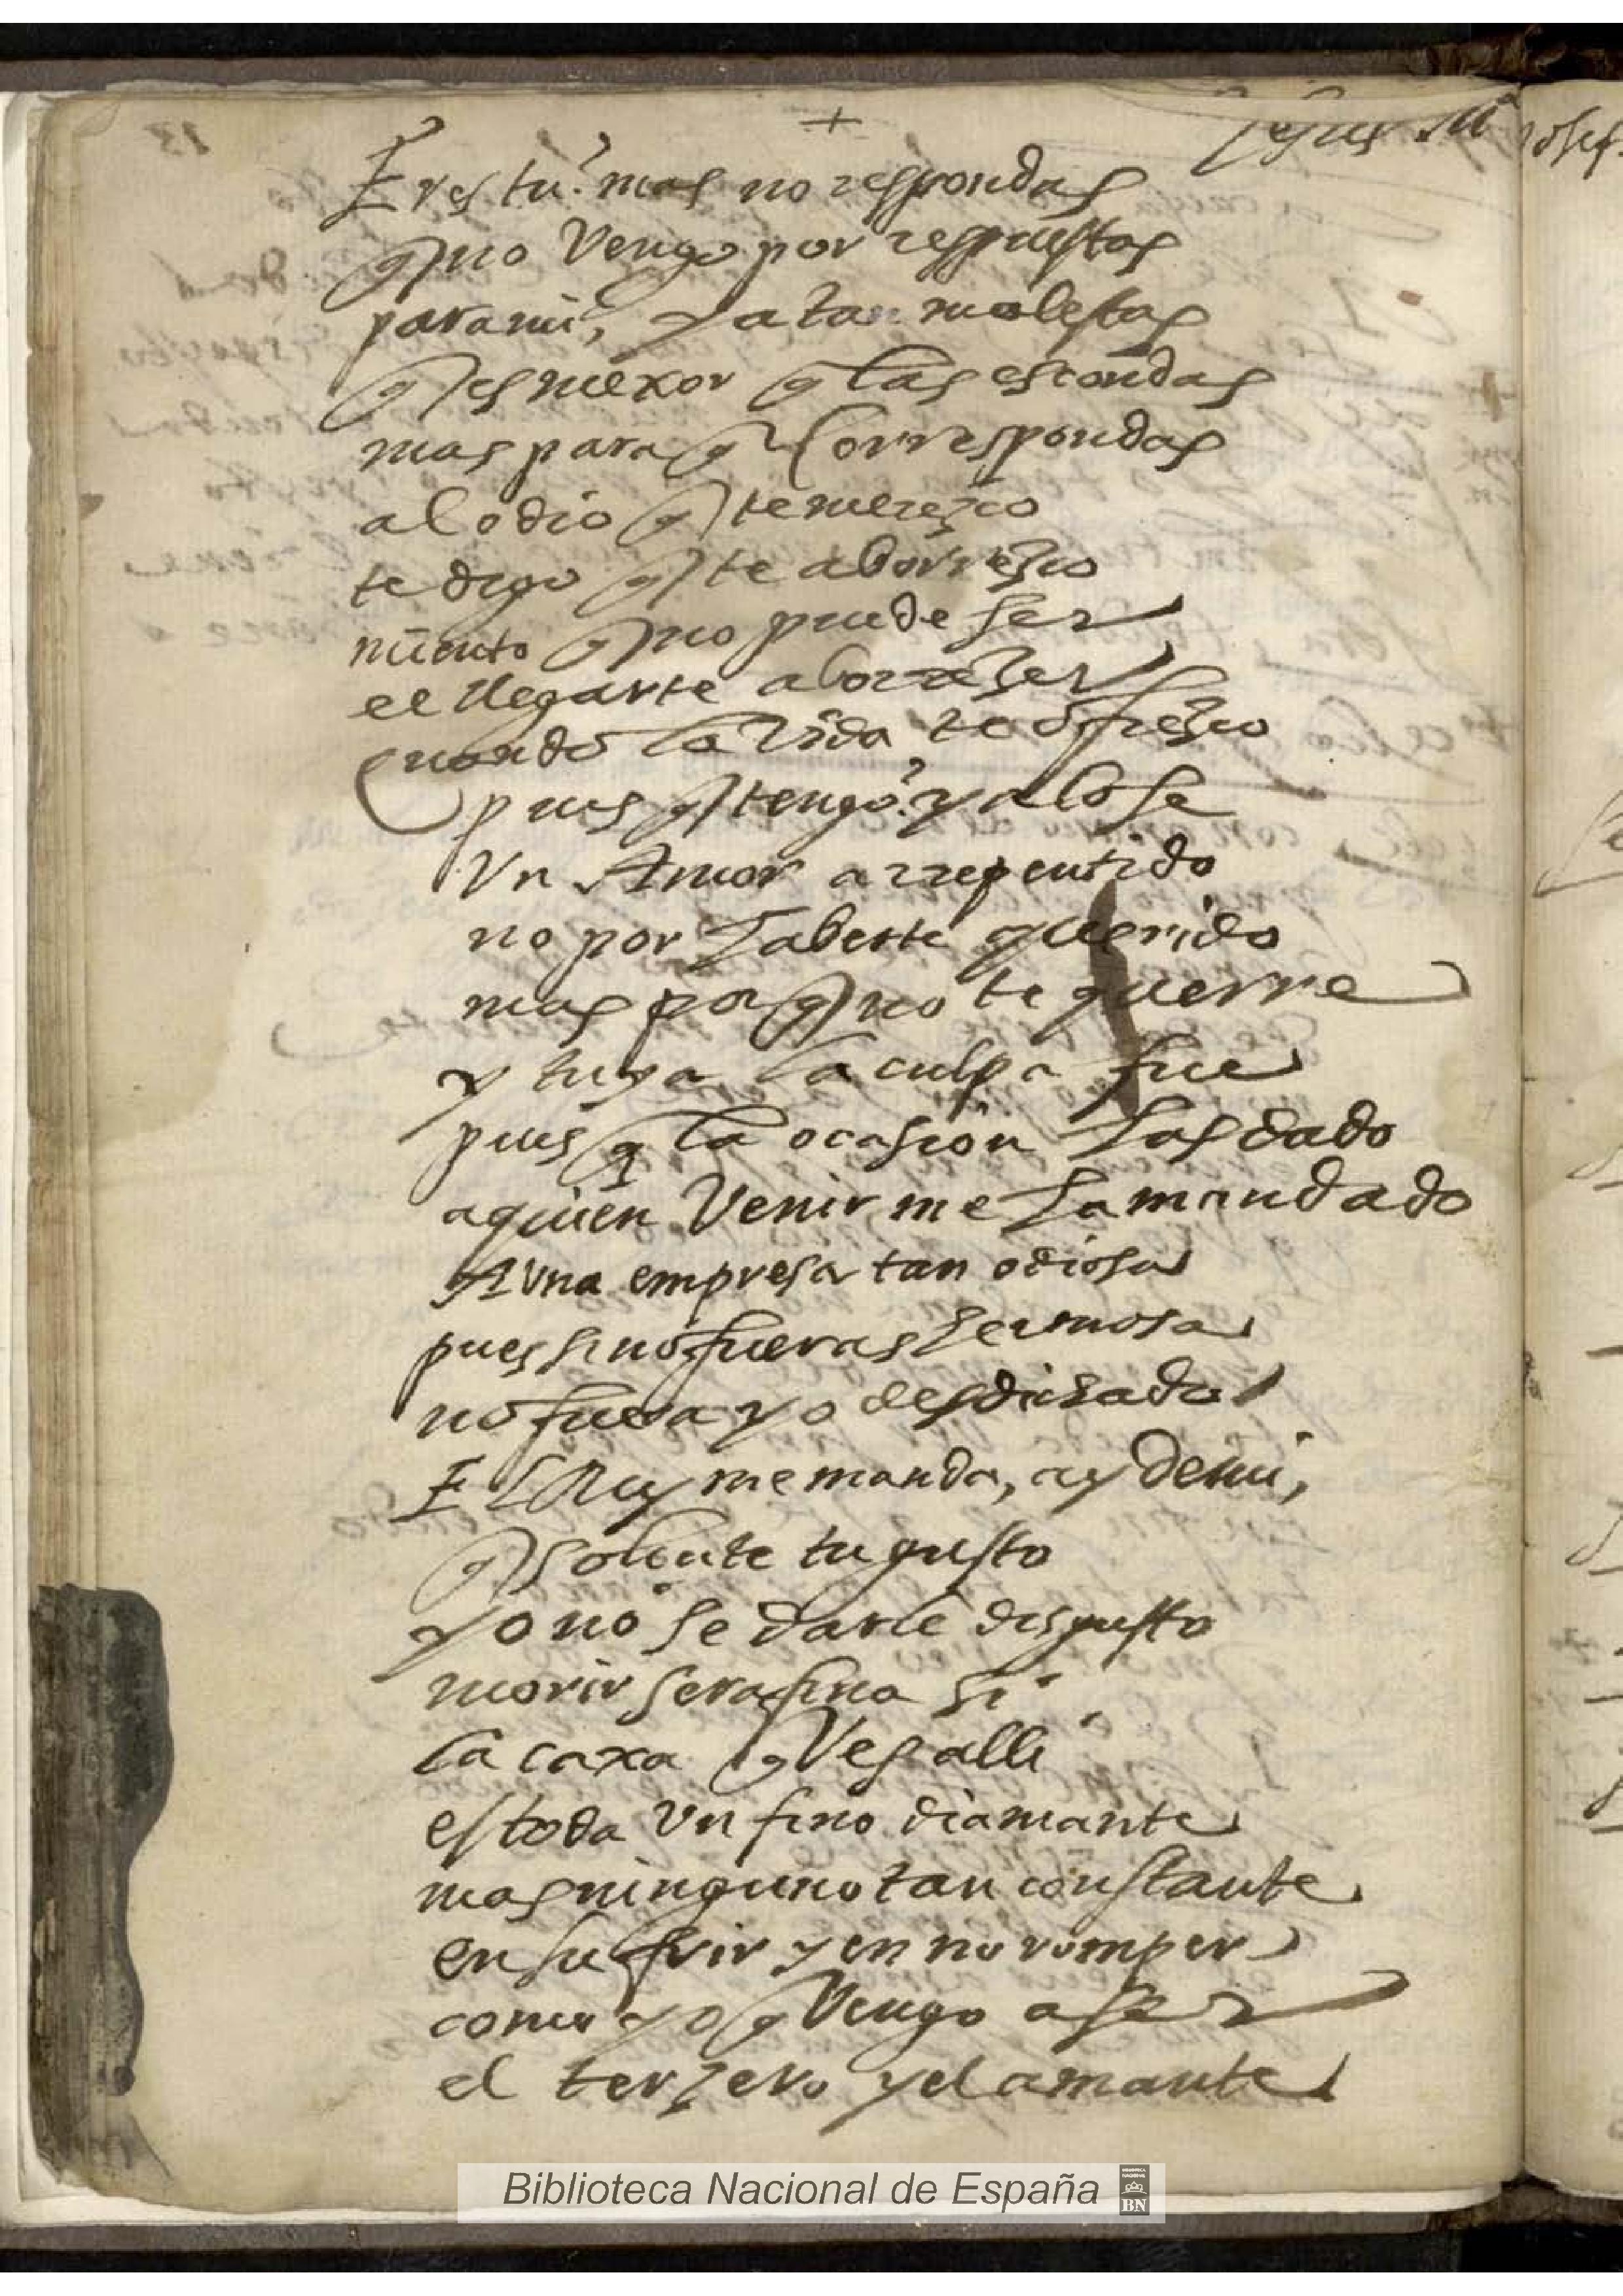 +
Jesus Mª Josef
Eres tu? mas no respondas
q no Vengo por respuestas
para mi, ya tan molestas
q es mexor q las escondas
mas para q Correspondas
al odio q te merezco
te digo q te aborrezco
miento q no puede ser
el llegarte aborrezer
quando la Vida te ofrezco
pues q tengo? ya lo se
Vn Amor arrepentido
no por haberte querido
mas por q no te querre
y tuya la culpa fue
pues q la ocasion has dado
a quien Venir me ha mandado
A Vna empresa tan odiosa
pues si no fueras hermosa
no fuera yo desdichado
El Rey me manda, ay de mi,
q solicite tu gusto
yo no se darle disgusto
morir serafina si
la caxa q Ves alli
es toda Vn fino diamante
mas ninguno tan constante
en sufrir y en no romper
como yo q Vengo a ser
el terzero y el amante
Biblioteca Nacional de España
BN